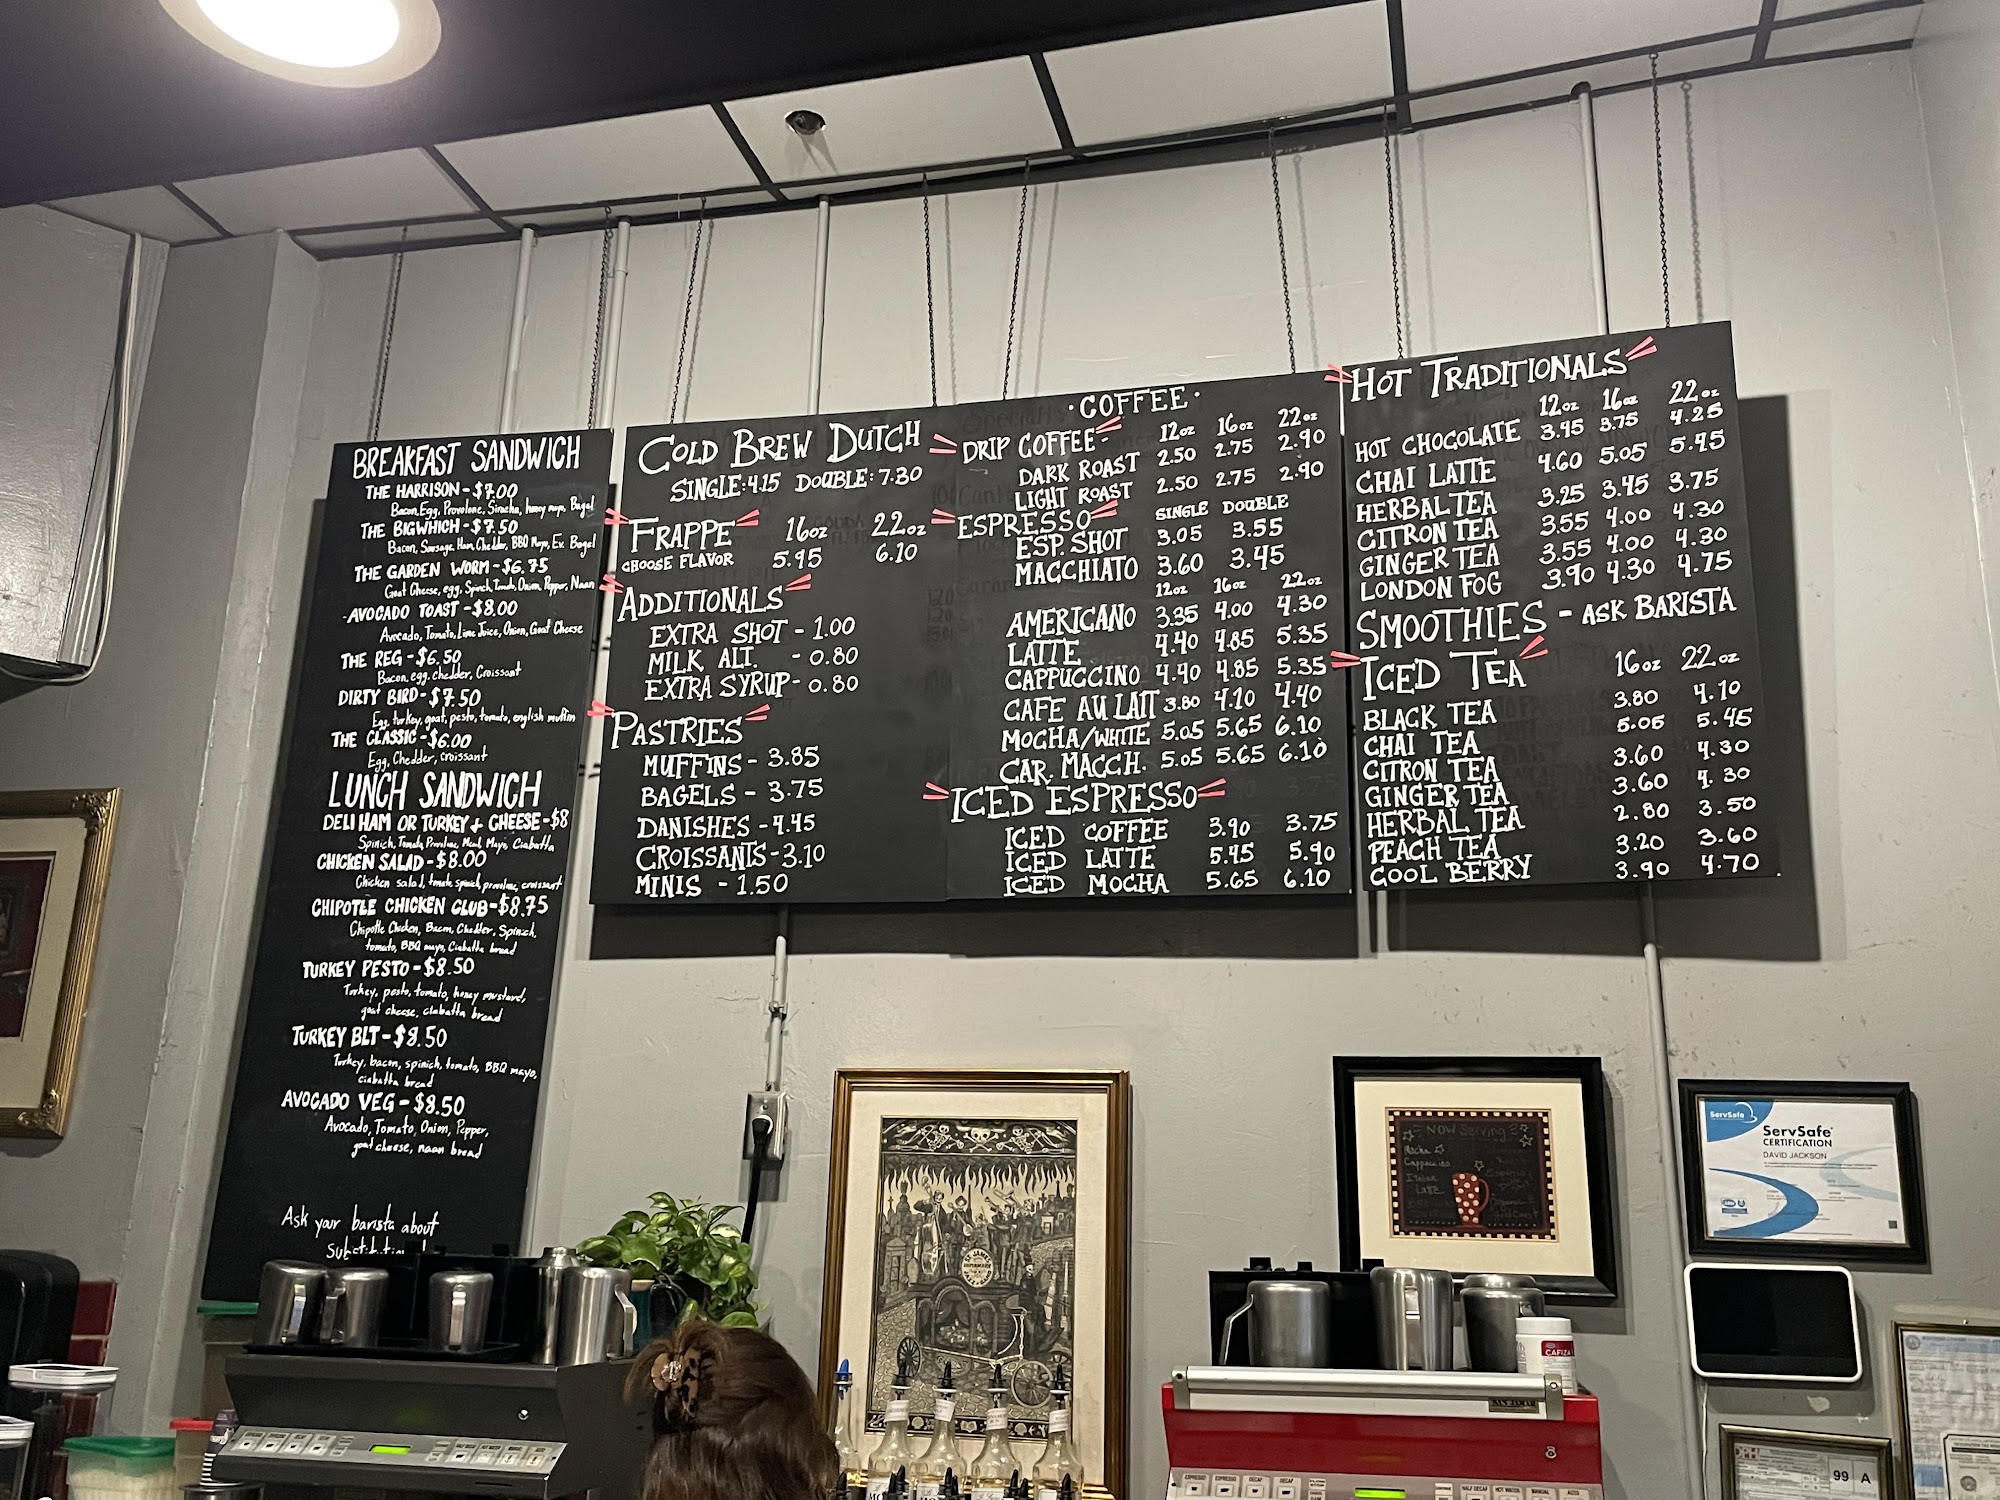 BREAKFAST SANDWICH
THE HARRISON - $7.00
Bacon, Egg, Provolone, Siracha, honey mayo, Bagel
THE BIGWHICH - $7.50
Bacon, Sausage, Ham, Chedder, BBQ Mayo, Ev. Bagel
THE GARDEN WORM - $6.75
Goat Cheese, egg, Spinch, Tomato, Onion, Pepper, Naan
-AVOCADO TOAST - $8.00
Avocado, Tomato, Lime Juice, Onion, Goat Cheese
THE REG - $6.50
Bacon, egg, chedder, Croissant
DIRTY BIRD - $7.50
Egg, turkey, goat, pesto, tomato, english muffin
THE CLASSIC - $6.00
Egg, Chedder, croissant
LUNCH SANDWICH
DELI HAM OR TURKEY + CHEESE - $8
Spinich, Tomato, Provolone, Must, Mayo, Ciabatta
CHICKEN SALAD - $8.00
Chicken salad, tomato, spinich, provolone, croissant
CHIPOTLE CHICKEN CLUB - $8.75
Chipotle Chicken, Bacon, Chedder, Spinich,
tomato, BBQ mayo, Ciabatta bread
TURKEY PESTO - $8.50
Turkey, pesto, tomato, honey mustard,
goat cheese, ciabatta bread
TURKEY BLT - $8.50
Turkey, bacon, spinich, tomato, BBQ mayo,
ciabatta bread
AVOCADO VEG - $8.50
Avocado, Tomato, Onion, Pepper,
goat cheese, naan bread
Ask your barista about
COLD BREW DUTCH
SINGLE: 4.15 DOUBLE: 7.30
FRAPPE 16oz 22oz
CHOOSE FLAVOR 5.95 6.10
ADDITIONALS
EXTRA SHOT - 1.00
MILK ALT. - 0.80
EXTRA SYRUP - 0.80
PASTRIES
MUFFINS - 3.85
BAGELS - 3.75
DANISHES - 4.45
CROISSANTS - 3.10
MINIS - 1.50
·COFFEE·
DRIP COFFEE - 12oz 16oz 22oz
DARK ROAST 2.50 2.75 2.90
LIGHT ROAST 2.50 2.75 2.90
ESPRESSO SINGLE DOUBLE
ESP. SHOT 3.05 3.55
MACCHIATO 3.60 3.45
12oz 16oz 22oz
AMERICANO 3.35 4.00 4.30
LATTE 4.40 4.85 5.35
CAPPUCCINO 4.40 4.85 5.35
CAFE AU LAIT 3.80 4.10 4.40
MOCHA/WHITE 5.05 5.65 6.10
CAR. MACCH. 5.05 5.65 6.10
ICED ESPRESSO
ICED COFFEE 3.90 3.75
ICED LATTE 5.45 5.90
ICED MOCHA 5.65 6.10
HOT TRADITIONALS
12oz 16oz 22oz
HOT CHOCOLATE 3.45 3.75 4.25
CHAI LATTE 4.60 5.05 5.45
HERBAL TEA 3.25 3.45 3.75
CITRON TEA 3.55 4.00 4.30
GINGER TEA 3.55 4.00 4.30
LONDON FOG 3.90 4.30 4.75
SMOOTHIES - ASK BARISTA
ICED TEA 16oz 22oz
BLACK TEA 3.80 4.10
CHAI TEA 5.05 5.45
CITRON TEA 3.60 4.30
GINGER TEA 3.60 4.30
HERBAL TEA 2.80 3.50
PEACH TEA 3.20 3.60
COOL BERRY 3.90 4.70
NOW Serving
Mocha
Cappuccino
Latte
ServSafe
ServSafe
CERTIFICATION
DAVID JACKSON
CAFIZA
99 A